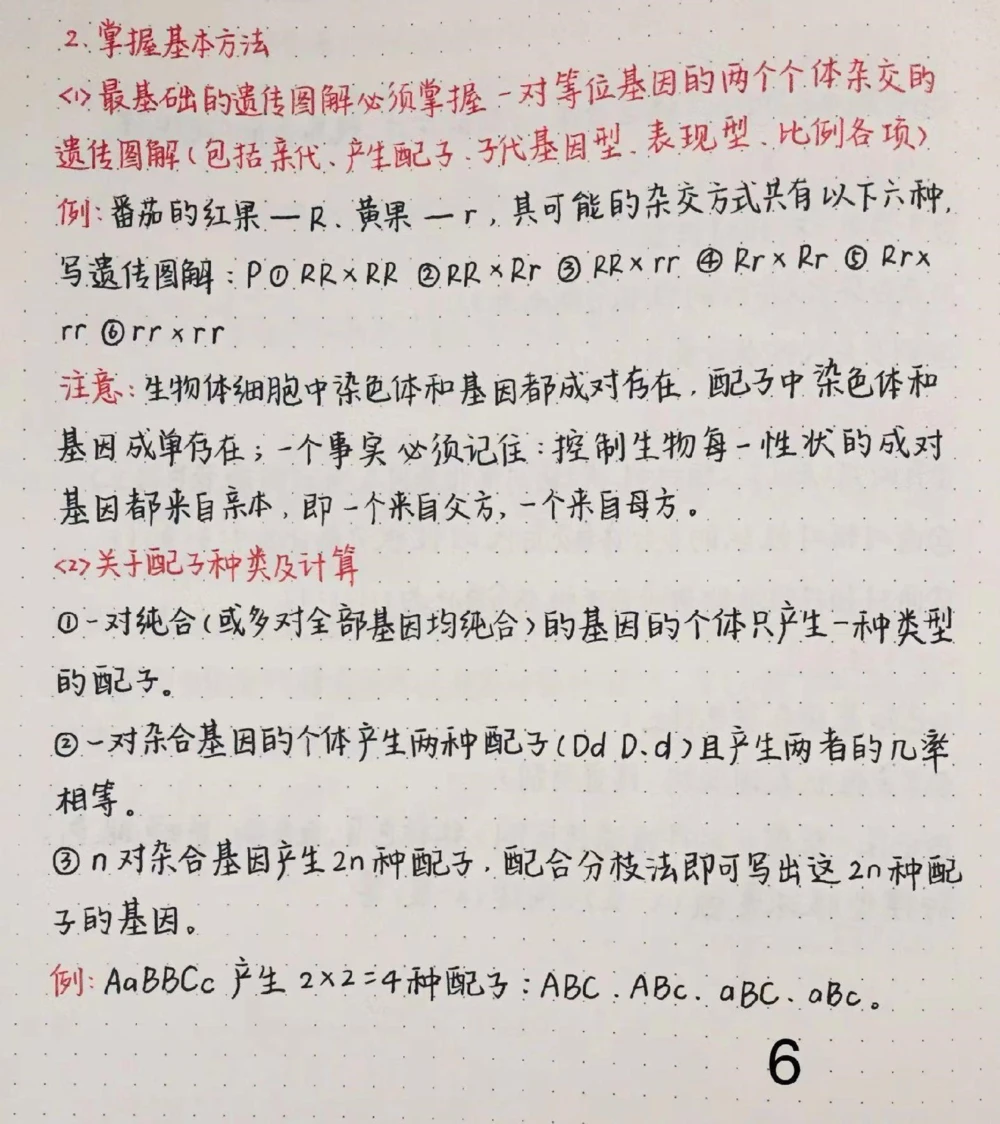 2.掌握基本方法
<1>最基础的遗传图解必须掌握一对等位基因的两个个体杂交的
遗传图解(包括亲代、产生配子、子代基因型、表现型、比例各项)
例:番茄的红果—R、黄果—r,其可能的杂交方式共有以下六种,
写遗传图解:P①RR×RR ②RR×Rr ③RR×rr ④Rr×Rr ⑤Rr×
rr ⑥rr×rr
注意:生物体细胞中染色体和基因都成对存在,配子中染色体和
基因成单存在;一个事实必须记住:控制生物每一性状的成对
基因都来自亲本,即一个来自父方,一个来自母方。
<2>关于配子种类及计算
①一对纯合(或多对全部基因均纯合)的基因的个体只产生一种类型
的配子。
②一对杂合基因的个体产生两种配子(Dd D、d)且产生两者的几率
相等。
③n对杂合基因产生2n种配子,配合分枝法即可写出这2n种配
子的基因。
例:AaBBCc产生2×2=4种配子:ABC、ABc、aBC、aBc。
6